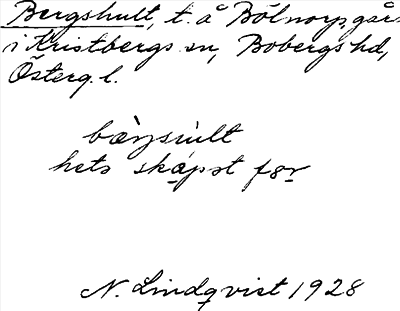 Bergshult, t. å Bölnorp, går
i Kristbergs sn, Bobergs hd,
Österg. l.
hets skápst før
N. Lindqvist 1928